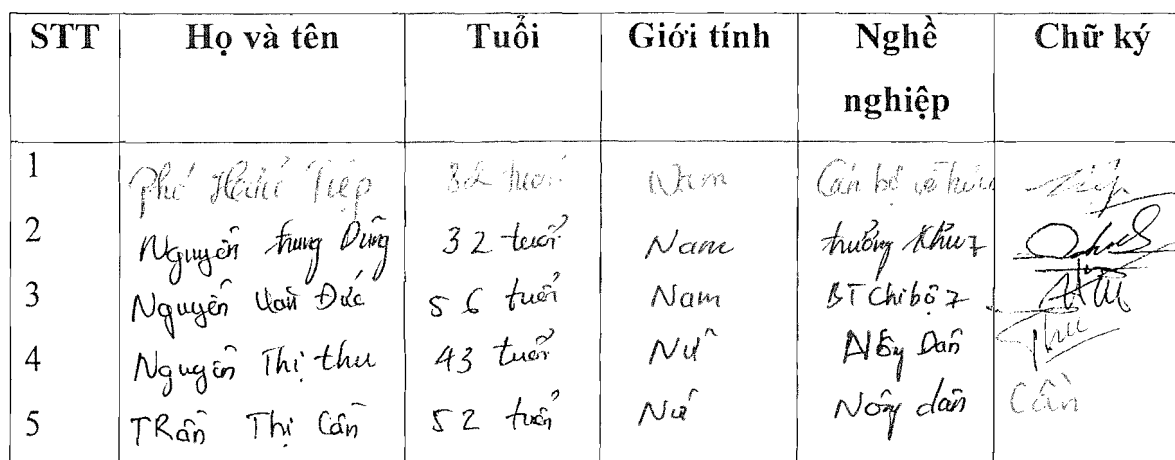 STT Họ và tên Tuổi Giới tính Nghề nghiệp Chữ ký
1 Phó Hữu Tiệp 32 tuổi Nam Cán bộ về hưu Tiệp
2 Nguyễn Trung Dũng 32 tuổi Nam trưởng khu 7
3 Nguyễn Văn Đức 56 tuổi Nam BT chi bộ 7
4 Nguyễn Thị thu 43 tuổi Nữ Nông Dân Thu
5 TRần Thị Cần 52 tuổi Nữ Nông dân Cần